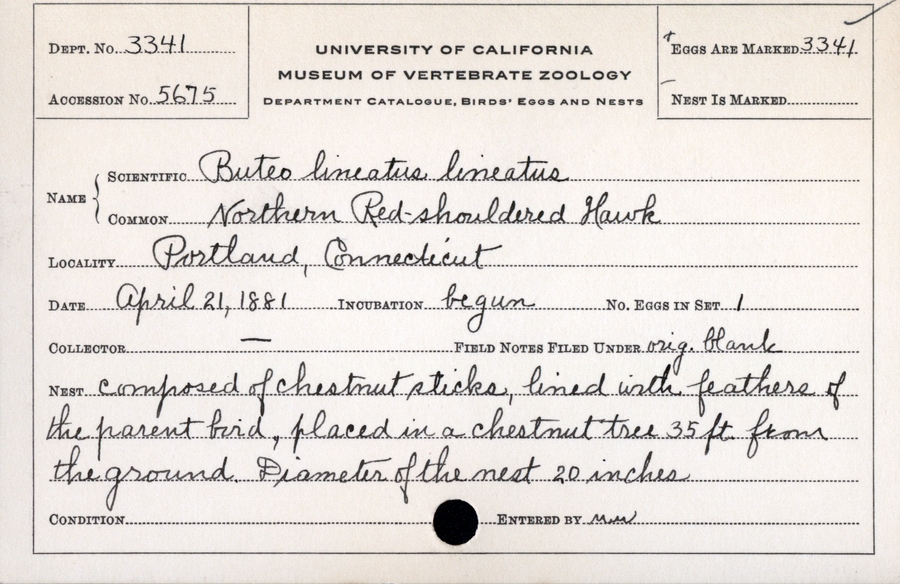 DEPT. No. 3341
ACCESSION No. 5675
UNIVERSITY OF CALIFORNIA
MUSEUM OF VERTEBRATE ZOOLOGY
DEPARTMENT CATALOGUE, BIRDS' EGGS AND NESTS
EGGS ARE MARKED 3341
NEST IS MARKED
NAME
SCIENTIFIC Buteo lineatus lineatus
COMMON Northern Red-shouldered Hawk
LOCALITY Portland, Connecticut
DATE April 21, 1881 INCUBATION begun No. EGGS IN SET 1
COLLECTOR — FIELD NOTES FILED UNDER orig. blank
NEST composed of chestnut sticks, lined with feathers of
the parent bird, placed in a chestnut tree 35 ft. from
the ground. Diameter of the nest 20 inches
CONDITION ENTERED BY